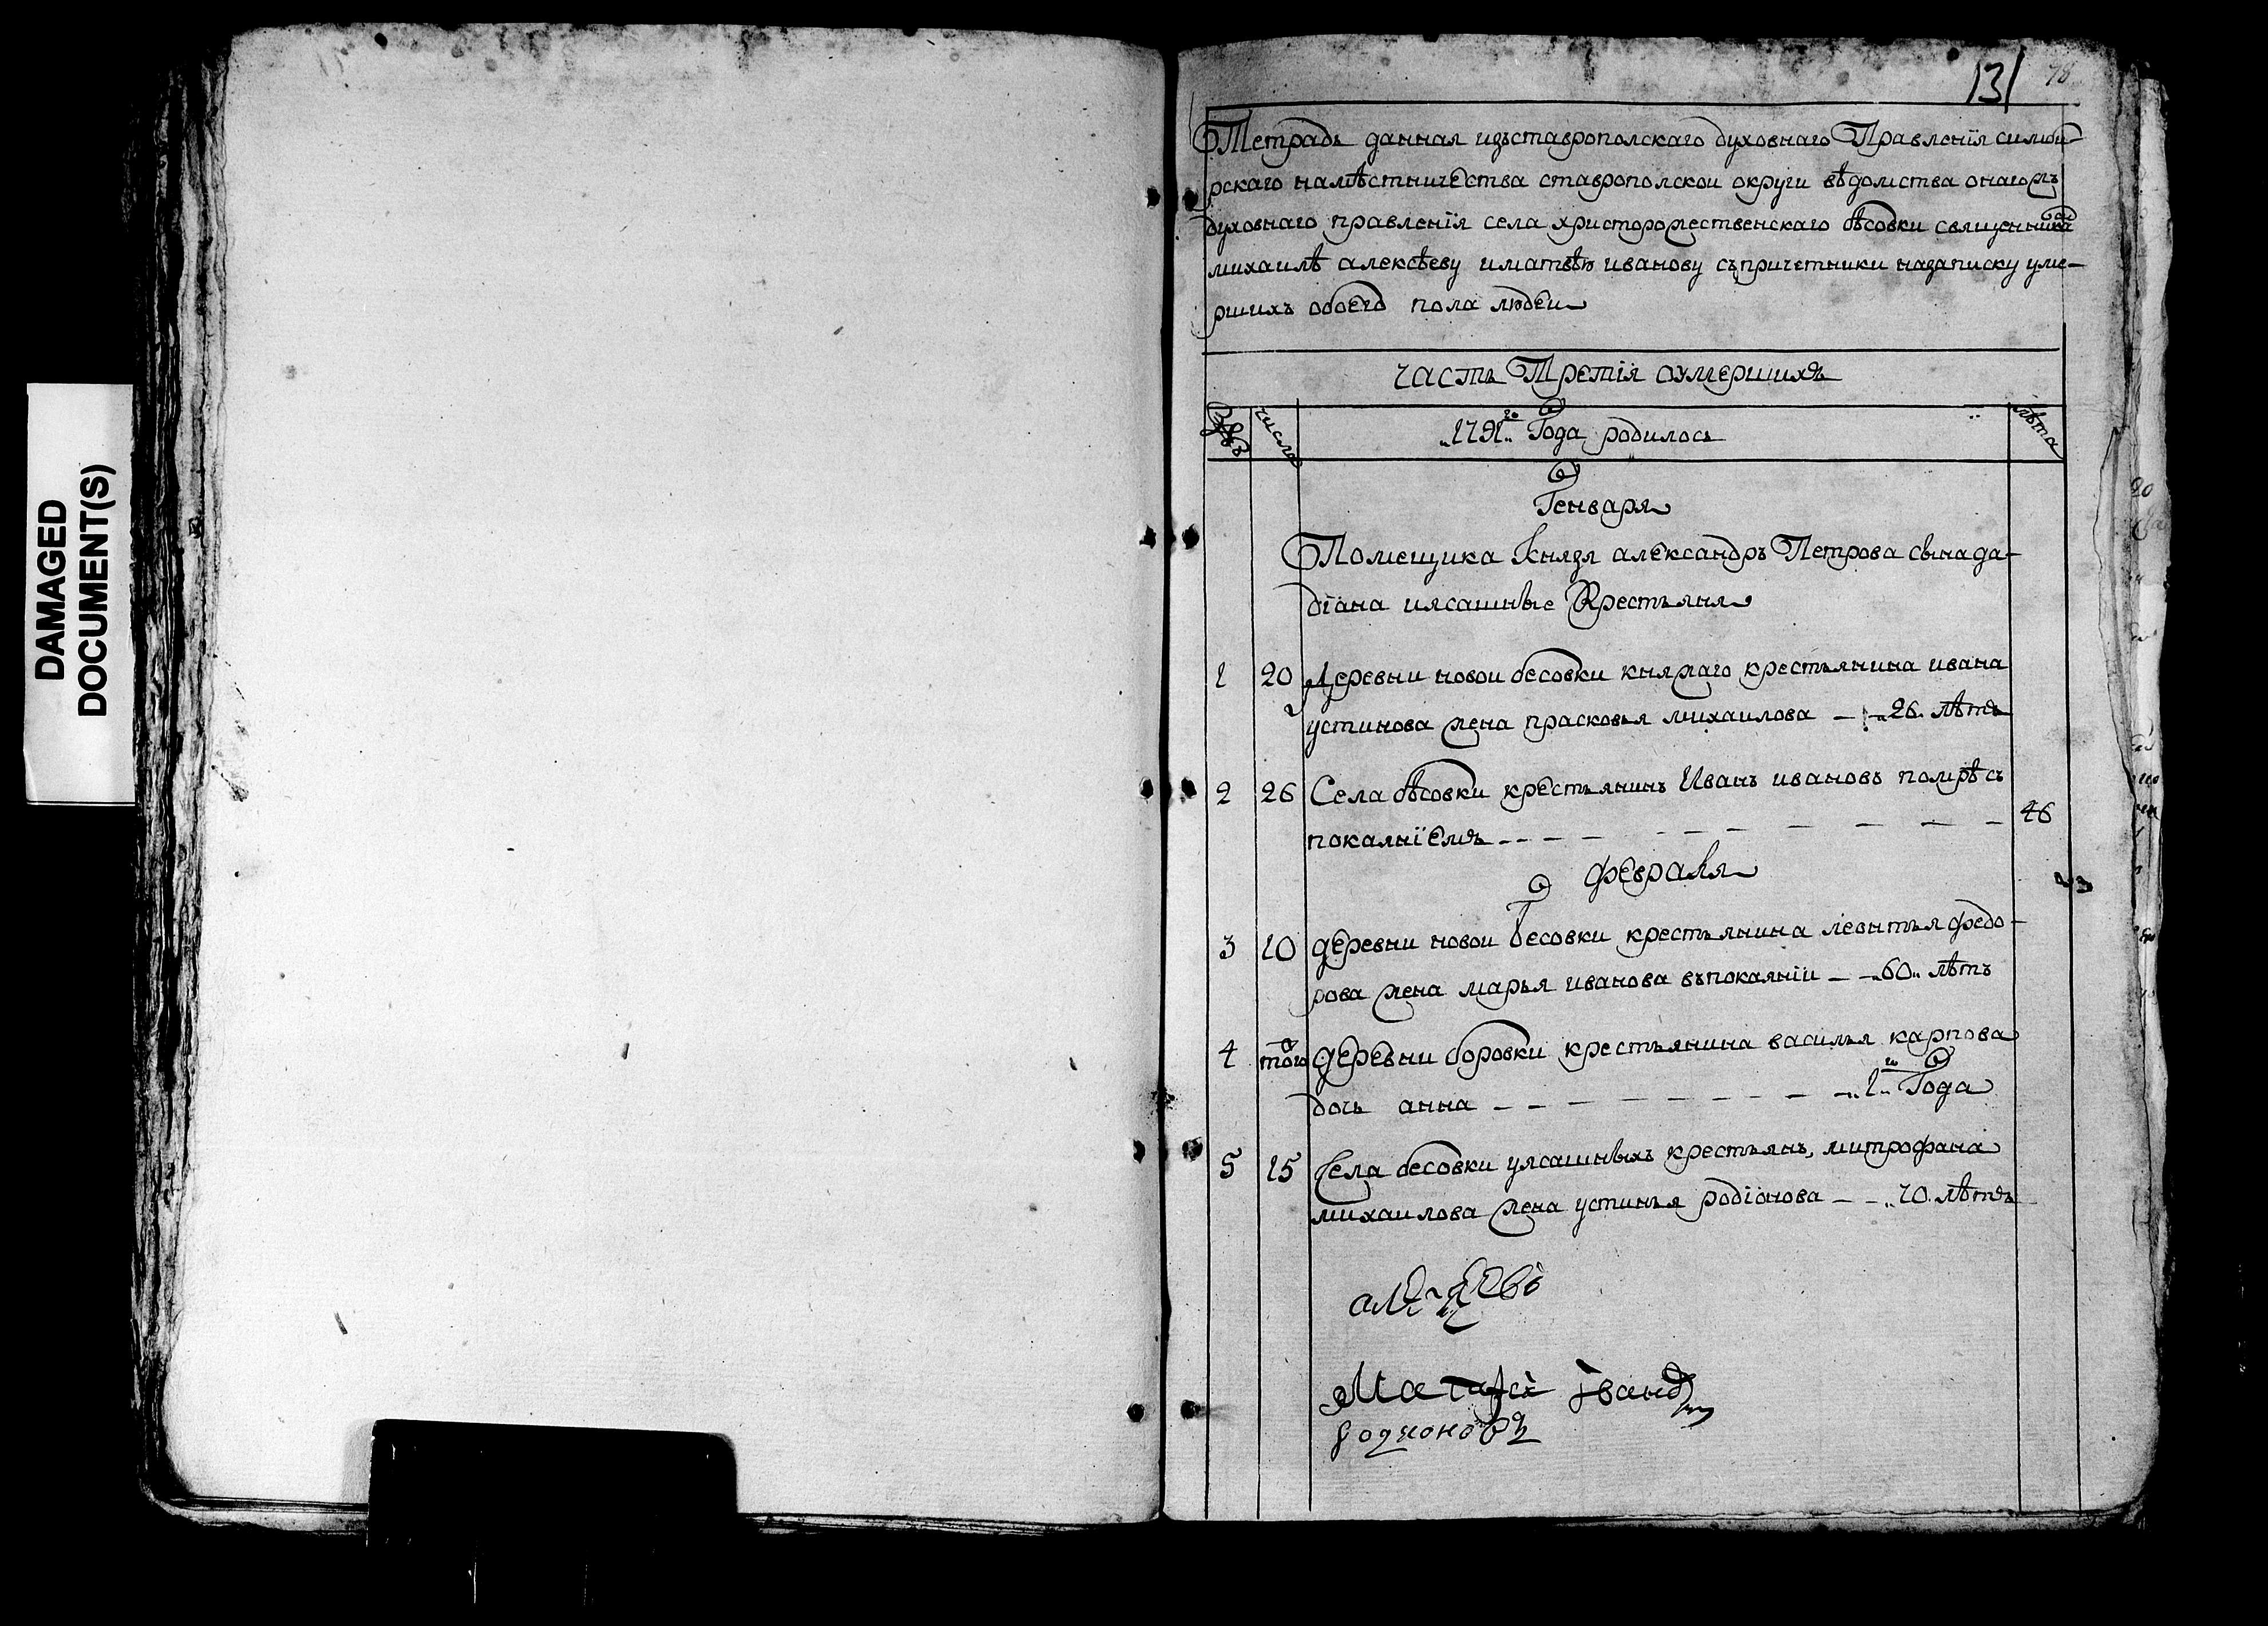 DAMAGED
DOCUMENT(S)
131 78
Тетрадь данная изъставрополскаго духовнаго Правленїя симби-
рскаго намѣстничества ставрополскои округи вѣдомства онагожъ
духовнаго правленїя села христорожественскаго бѣсовки священникамъ
михаилѣ алексѣеву иматвѣю иванову съпричетники назаписку уме-
ршихъ обоего пола людеи
часть Третїя оумершихъ
числа 1791го Года родилось лѣта
Генваря
Помещика Князя александръ Петрова сына да-
дїана иясашные Крестьяня
1 20 Деревни новои бесовки княжаго крестьянина ивана
устинова жена прасковья михаилова 26 лѣтъ
2 26 Села бѣсовки крестьянинъ Иванъ ивановъ помрѣ съ
покаянїемъ 46
февраля
3 10 деревни новои бесовки крестьянина леонтья федо-
рова жена марья иванова въпокаянїи 60 лѣтъ
4 того деревни боровки крестьянина василья карпова
дочь анна 1го Года
5 15 Села бесовки уясашныхъ крестьянъ, митрофана
михаилова жена устинья родїонова 70 лѣтъ
Матфей Iванов
родионовъ